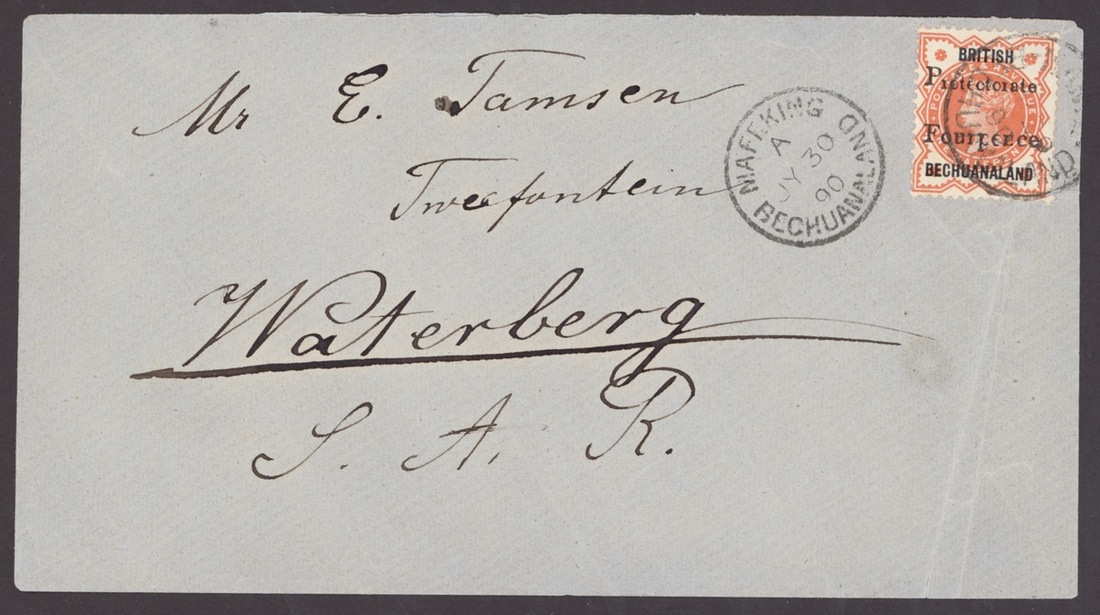 Mr E. Tamsen
Tweefontein
Waterberg
S. A. R.
MAFEKING BECHUANALAND
A
JY 30
90
BRITISH
Protectorate
Fourpence
BECHUANALAND